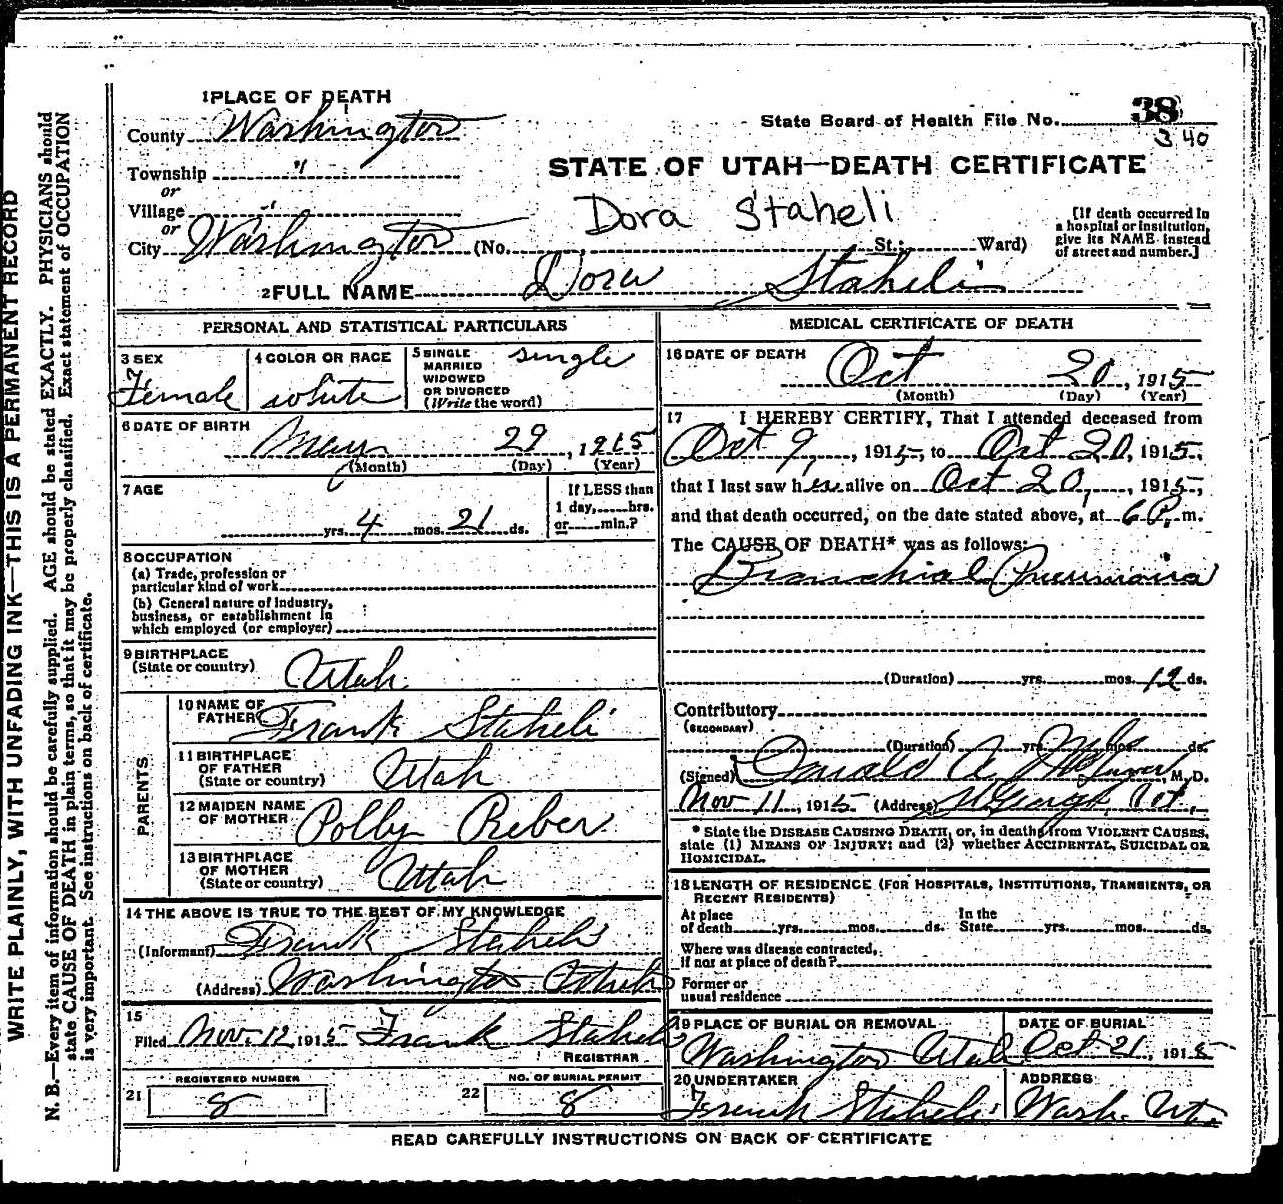 1 PLACE OF DEATH
County Washington
Township "
or
Village "
or
City Washington (No. St.; Ward)
State Board of Health File No. 38
340
STATE OF UTAH—DEATH CERTIFICATE
Dora Staheli
[If death occurred in a hospital or institution, give its NAME instead of street and number.]
2 FULL NAME Dora Staheli
PERSONAL AND STATISTICAL PARTICULARS
3 SEX Female
4 COLOR OR RACE white
5 SINGLE MARRIED WIDOWED OR DIVORCED (Write the word) single
6 DATE OF BIRTH May 29, 1915
(Month) (Day) (Year)
7 AGE
yrs. 4 mos. 21 ds.
If LESS than 1 day, hrs. or min.?
8 OCCUPATION
(a) Trade, profession or particular kind of work
(b) General nature of Industry, business, or establishment in which employed (or employer)
9 BIRTHPLACE (State or country) Utah
PARENTS
10 NAME OF FATHER Frank Staheli
11 BIRTHPLACE OF FATHER (State or country) Utah
12 MAIDEN NAME OF MOTHER Polly Reber
13 BIRTHPLACE OF MOTHER (State or country) Utah
14 THE ABOVE IS TRUE TO THE BEST OF MY KNOWLEDGE
(Informant) Frank Staheli
(Address) Washington Utah
15
Filed Nov. 12 1915 Frank Staheli
REGISTRAR
REGISTERED NUMBER
21 8
NO. OF BURIAL PERMIT
22 8
MEDICAL CERTIFICATE OF DEATH
16 DATE OF DEATH
Oct 20, 1915
(Month) (Day) (Year)
17 I HEREBY CERTIFY, That I attended deceased from
Oct 9, 1915, to Oct 20, 1915,
that I last saw her alive on Oct 20, 1915,
and that death occurred, on the date stated above, at 6 P. m.
The CAUSE OF DEATH* was as follows:
Bronchial Pneumonia
(Duration) yrs. mos. 12 ds.
Contributory
(SECONDARY)
(Duration) yrs. mos. ds.
(Signed) Donald A. M.D.
Nov 11, 1915 (Address) St George Ut.
* State the DISEASE CAUSING DEATH, or, in deaths from VIOLENT CAUSES, state (1) MEANS OF INJURY; and (2) whether ACCIDENTAL, SUICIDAL OR HOMICIDAL.
18 LENGTH OF RESIDENCE (FOR HOSPITALS, INSTITUTIONS, TRANSIENTS, OR RECENT RESIDENTS)
At place of death yrs. mos. ds. In the State yrs. mos. ds.
Where was disease contracted, If not at place of death?
Former or usual residence
19 PLACE OF BURIAL OR REMOVAL Washington Utah
DATE OF BURIAL Oct 21, 1915
20 UNDERTAKER Frank Staheli
ADDRESS Wash. Ut.
READ CAREFULLY INSTRUCTIONS ON BACK OF CERTIFICATE
WRITE PLAINLY, WITH UNFADING INK—THIS IS A PERMANENT RECORD
N. B.—Every item of information should be carefully supplied. AGE should be stated EXACTLY. PHYSICIANS should
state CAUSE OF DEATH in plain terms, so that it may be properly classified. Exact statement of OCCUPATION
is very important. See instructions on back of certificate.